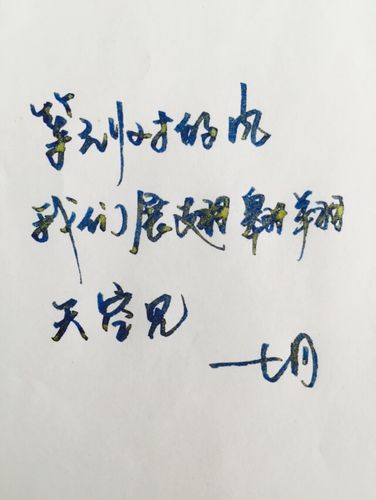 等到对的风
我们展翅翱翔
天空见
七月